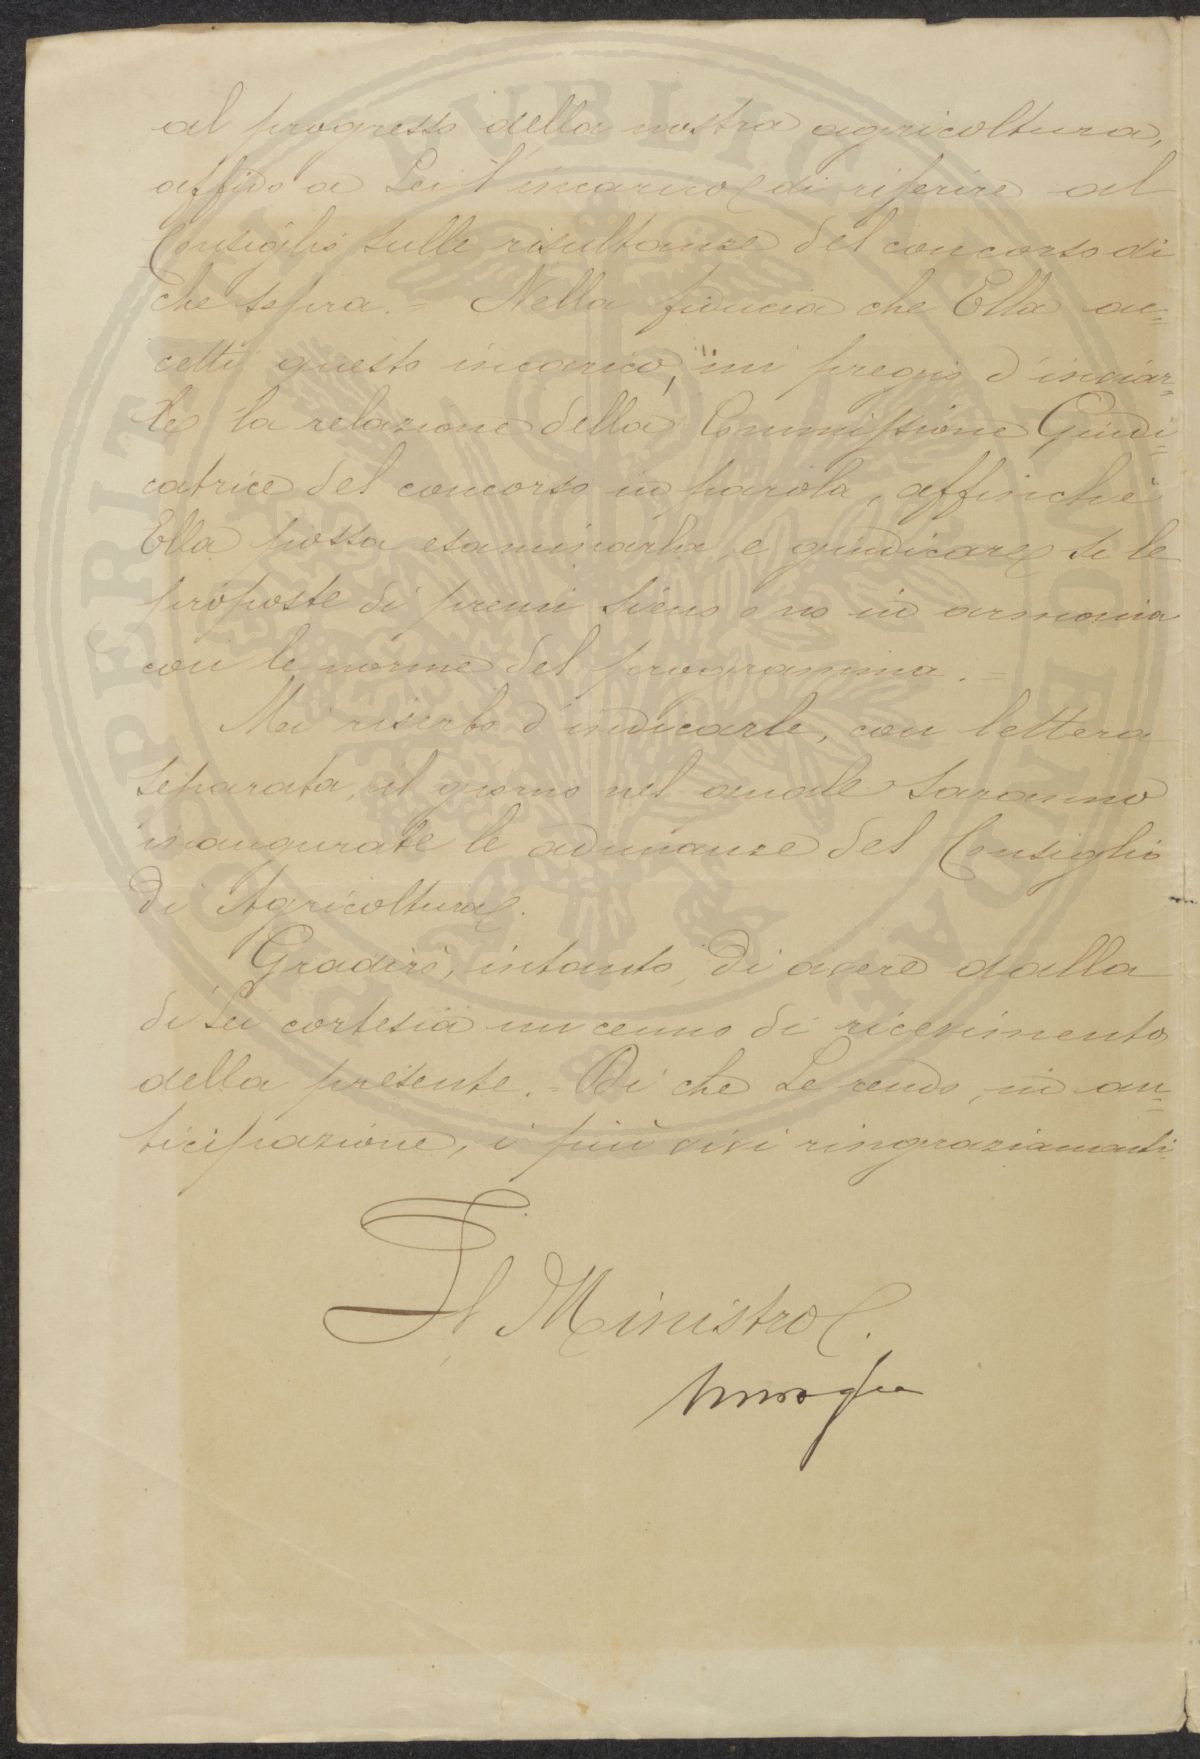 al progresso della nostra agricoltura,
affido a Lei l'incarico di riferire al
Consiglio sulle risultanze del concorso di
che sopra. = Nella fiducia che Ella ac=
cetti questo incarico, mi pregio d'inviar=
Le la relazione della Commissione Giudi=
catrice del concorso in parola, affinchè
Ella possa esaminarla e giudicare se le
proposte di premi sieno o no in armonia
con le norme del programma. =
Mi riserbo d'indicarle, con lettera
separata, il giorno nel quale saranno
inaugurate le adunanze del Consiglio
di Agricoltura.
Gradirò, intanto, di avere dalla
di Lei cortesia un cenno di ricevimento
della presente. = Di che Le rendo, in an=
ticipazione, i più vivi ringraziamenti.
Il Ministro.
PROSPERITATI PVBLICAE AVGENDAE